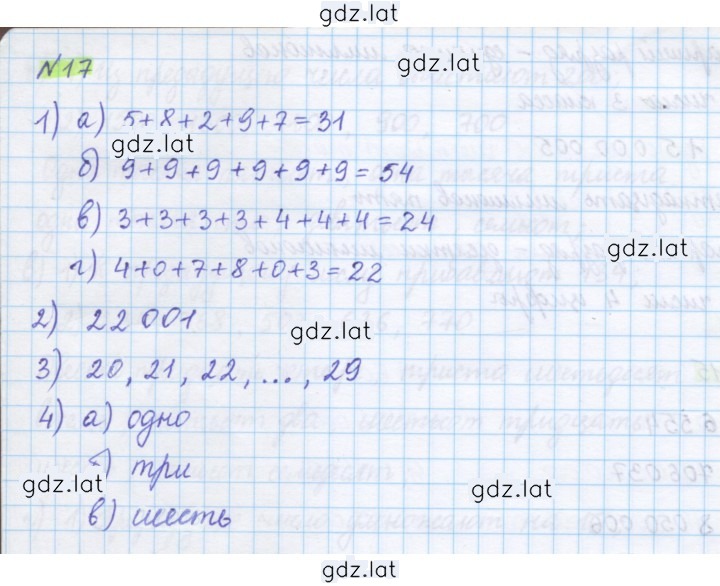 gdz.lat
№17
gdz.lat
1) а) 5+8+2+9+7=31
gdz.lat
б) 9+9+9+9+9+9=54
в) 3+3+3+3+4+4+4=24
gdz.lat
г) 4+0+7+8+0+3=22
2) 22 001
gdz.lat
3) 20, 21, 22, ..., 29
4) а) одно
б) три
gdz.lat
gdz.lat
в) шесть
gdz.lat